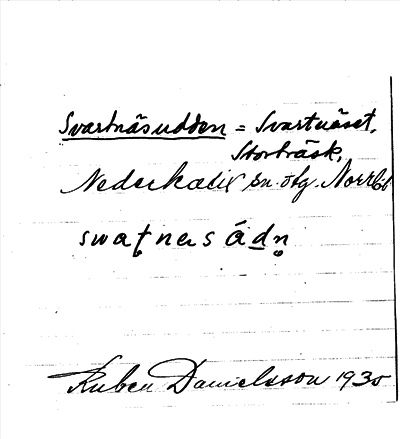 Svartnäsudden = Svartnäset,
Storträsk,
Nederkalix sn. o tg. Norrb.
Ruben Danielsson 1930